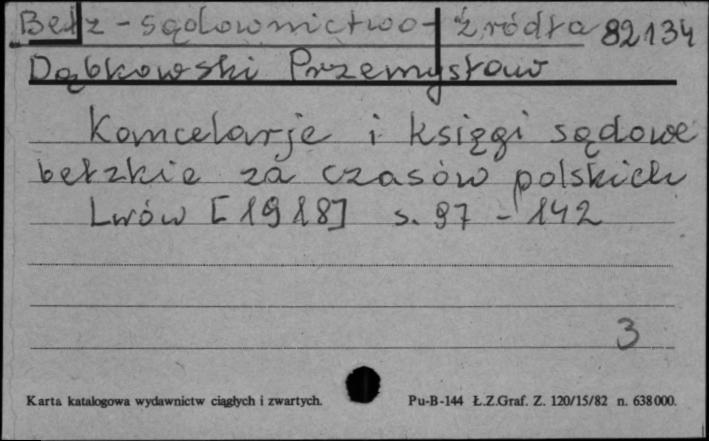 Bełz - sądownictwo - źródła 82134
Dąbkowski Przemysław
Kancelarje i księgi sądowe
bełzkie za czasów polskich
Lwów [1918] s. 97 - 142
3
Karta katalogowa wydawnictw ciągłych i zwartych. Pu-B-144 Ł.Z.Graf. Z. 120/15/82 n. 638000.